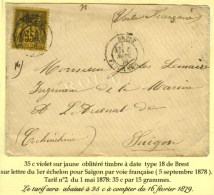 (voie Française)
BREST
A Monsieur
Ingénieur
A L'Arsenal de
Saïgon
(Cochinchine)
35 c violet sur jaune oblitéré timbre à date type 18 de Brest
sur lettre du 1er échelon pour Saïgon par voie française ( 5 septembre 1878 ).
Tarif n°2 du 1 mai 1878: 35 c par 15 grammes.
Le tarif sera abaissé à 25 c à compter du 16 février 1879.